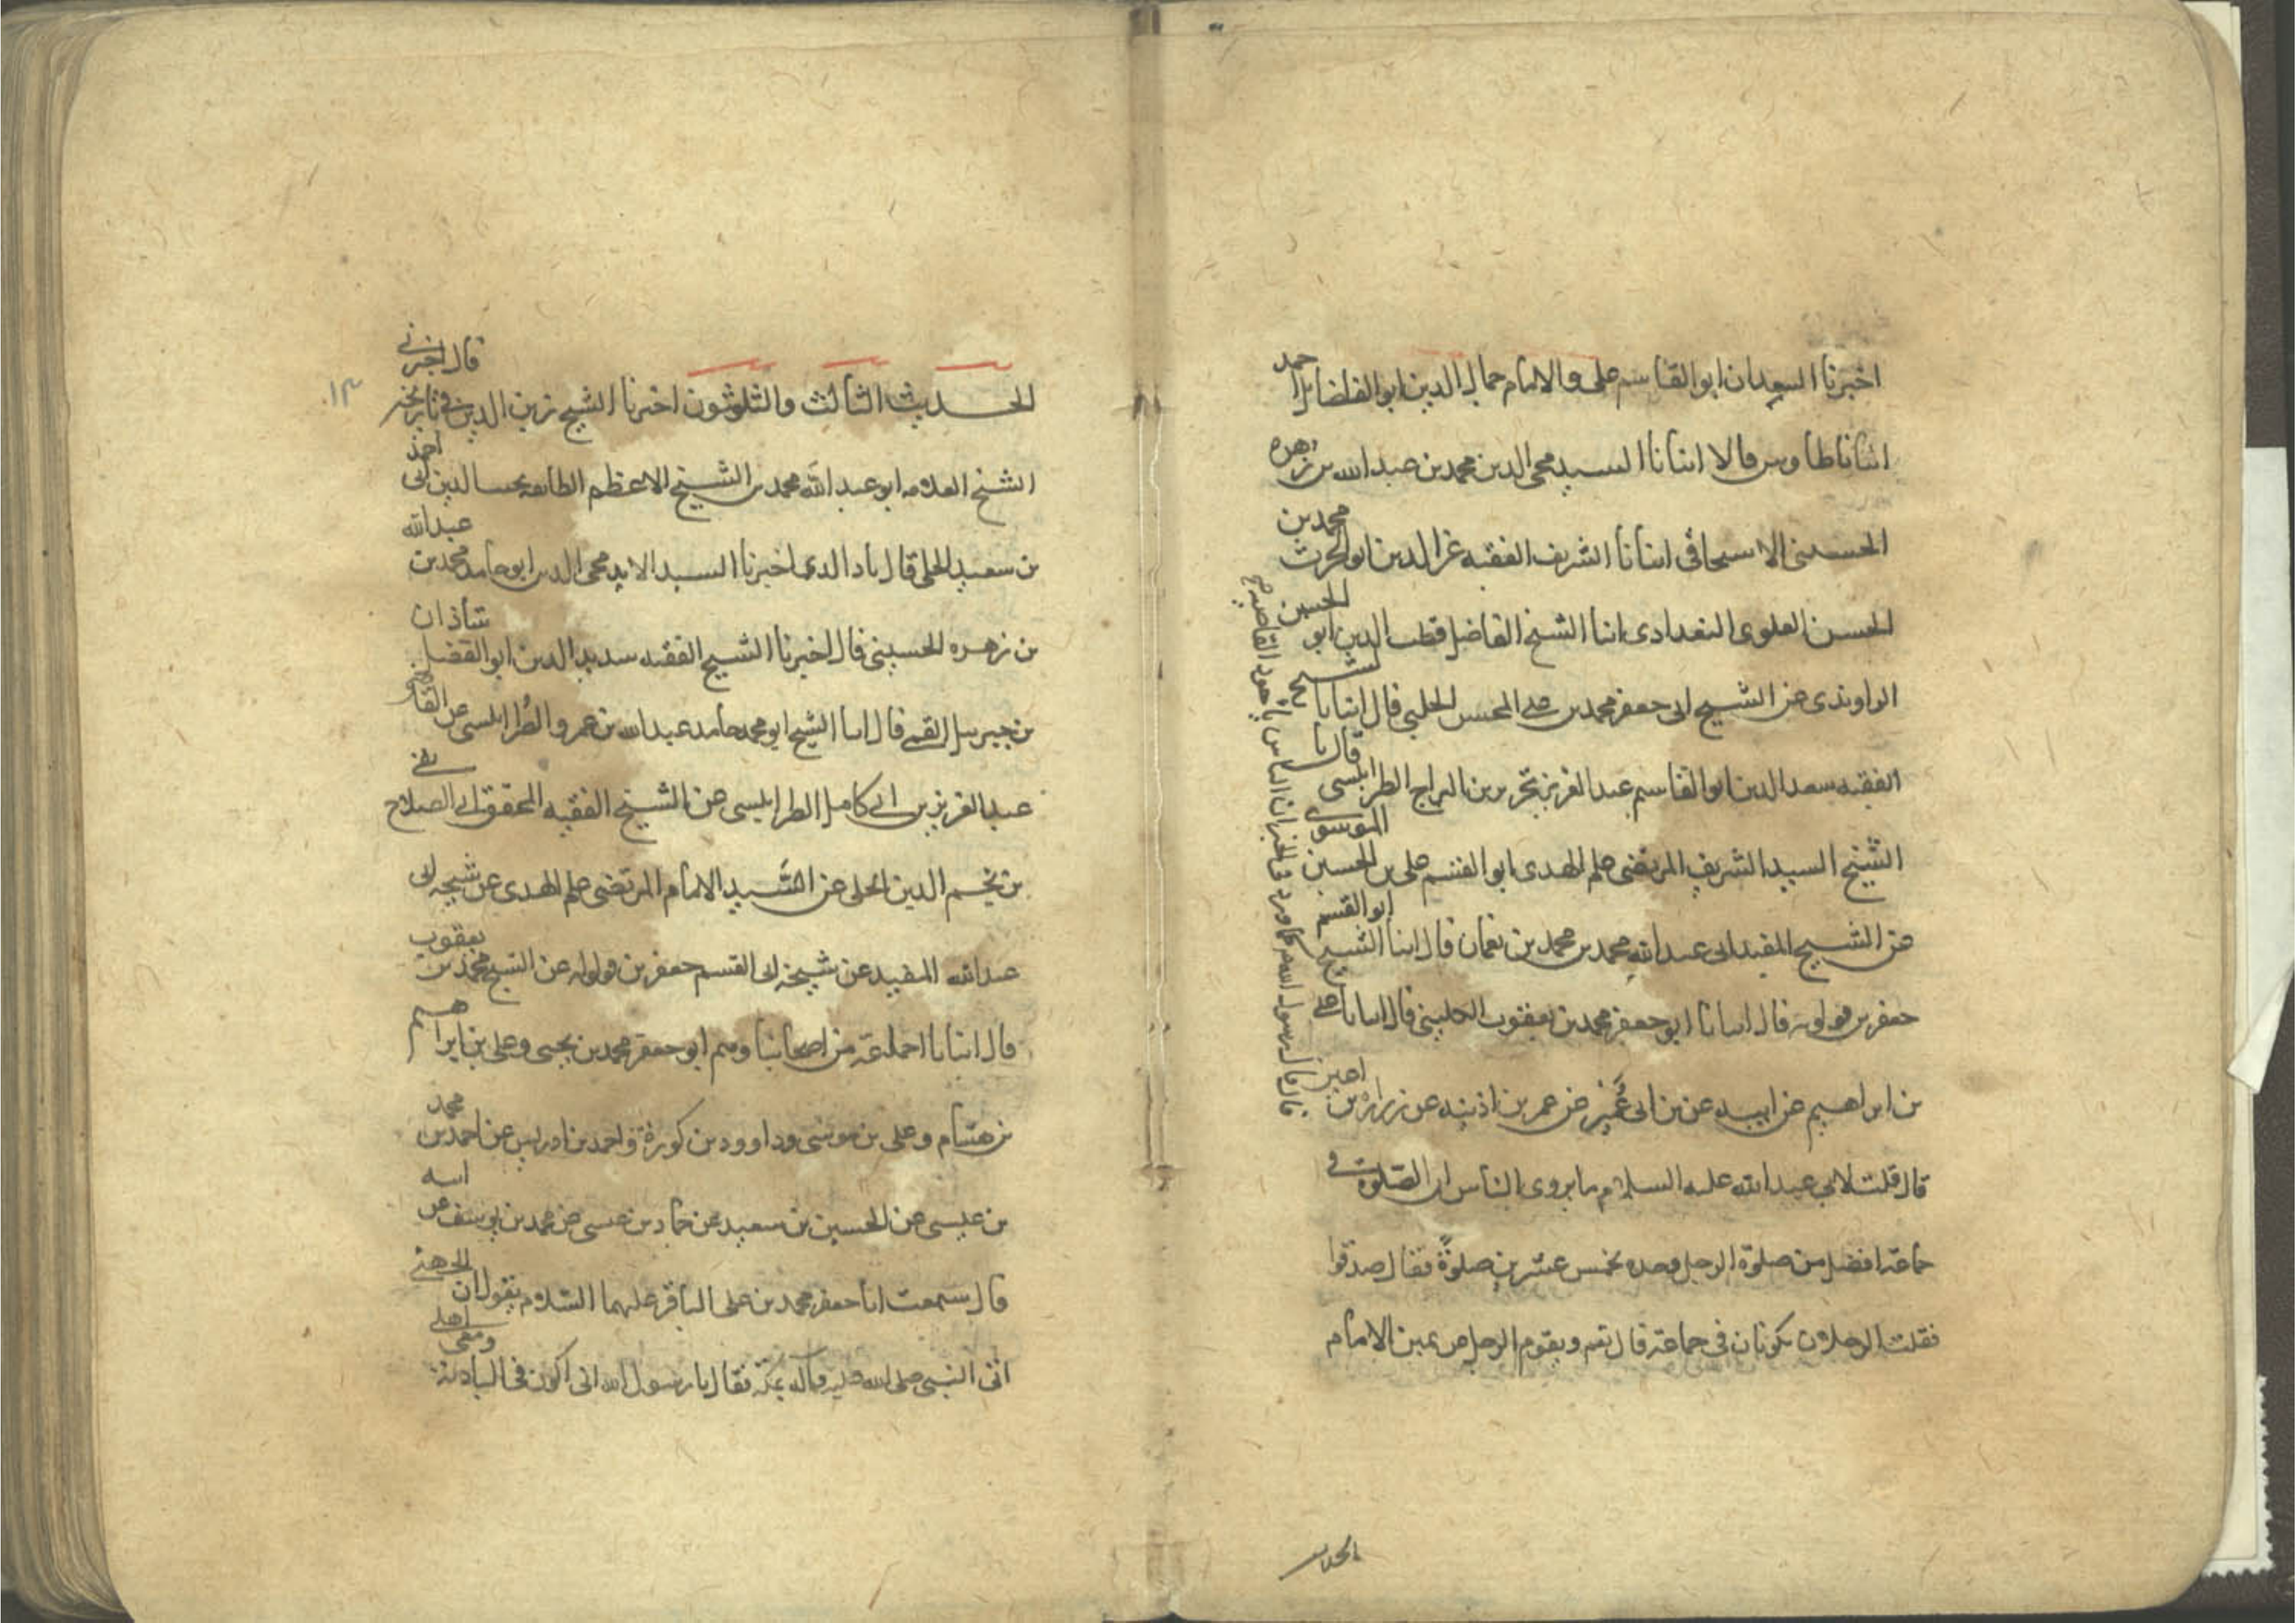 اخبرنا السعيدان ابو القاسم على والامام جمال الدين ابو الفضائل احمد
انثانا طاوس قالا انبانا السيد محى الدين محمد بن عبد الله بن زهره
الحسينى الاسحاقى انبانا الشريف الفقيه عز الدين ابو الحرث محمد بن
الحسن العلوى البغدادى انبا الشيخ الفاضل قطب الدين ابو الحسين
الراوندى عن الشيخ ابى جعفر محمد بن على المحسن الحلبى قال انبانا الشيخ
الفقيه سعد الدين ابو القاسم عبد العزيز بن نحرير بن البراج الطرابلسى قال نا
الشيخ السيد الشريف المرتضى علم الهدى ابو القسم على بن الحسين الموسوى
عن الشيخ المفيد ابى عبد الله محمد بن محمد بن نعمان قال انبا الشيخ ابو القسم
جعفر بن قولويه قال انبانا ابو جعفر محمد بن يعقوب الكلينى قال انبانا على
بن ابراهيم عن ابيه عن بن ابى عُمَير عن عمر بن اذينه عن زراره بن اعين
قال قلت لابى عبد الله عليه السلام ما يروى الناس ان الصلوة فى
جماعة افضل من صلوة الرجل وحده بخمس عشرين صلوةً فقال صدقوا
فقلت الرجلان يكونان فى جماعة قال نعم ويقوم الرجل عن يمين الامام
الحديث
الحديث الثالث والثلثون اخبرنا الشيخ زين الدين قال اخبرنى
الشيخ العلامه ابو عبد الله محمد بن الشيخ الاعظم الطائفه
بن سعيد الحلى قال اخبرنا السيد محى الدين ابو حامد محمد بن عبد الله
بن زهره الحسينى قال اخبرنا الشيخ الفقيه سديد الدين ابو الفضل شاذان
بن جبريل القمى قال انبا الشيخ ابو محمد حامد عبد الله بن عمر والطرابلسى عن القاضى
عبد العزيز بن ابى كامل الطرابلسى عن الشيخ الفقيه المحقق ابى الصلاح تقى
بن نجم الدين الحلى عن السَّيد الامام المرتضى علم الهدى عن شيخه ابى
عبد الله المفيد عن شيخه ابى القسم جعفر بن قولويه عن الشيخ محمد بن يعقوب
قال انبانا جماعة من اصحابنا وهم ابو جعفر محمد بن يحيى وعلى بن ابراهيم
بن هشام وعلى بن موسى وداوود بن كورة واحمد بن ادريس عن احمد بن محمد
بن عيسى عن الحسين بن سعيد عن حماد بن عيسى عن محمد بن يوسف عن ابيه
قال سمعت ابا جعفر محمد بن على الباقر عليهما السلام يقول ان الجهنى
اتى النبى صلى الله عليه وآله بمكة فقال يا رسول الله انى اكون فى البادية ومعى اهلى